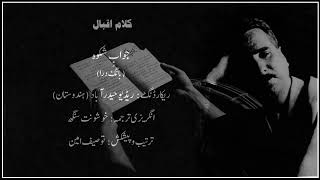 کلام اقبال
جواب شکوہ
(بانگ درا)
ریکارڈنگ: ریڈیو حیدرآباد (ہندوستان)
انگریزی ترجمہ: خوشونت سنگھ
ترتیب و پیشکش: توصیف امین